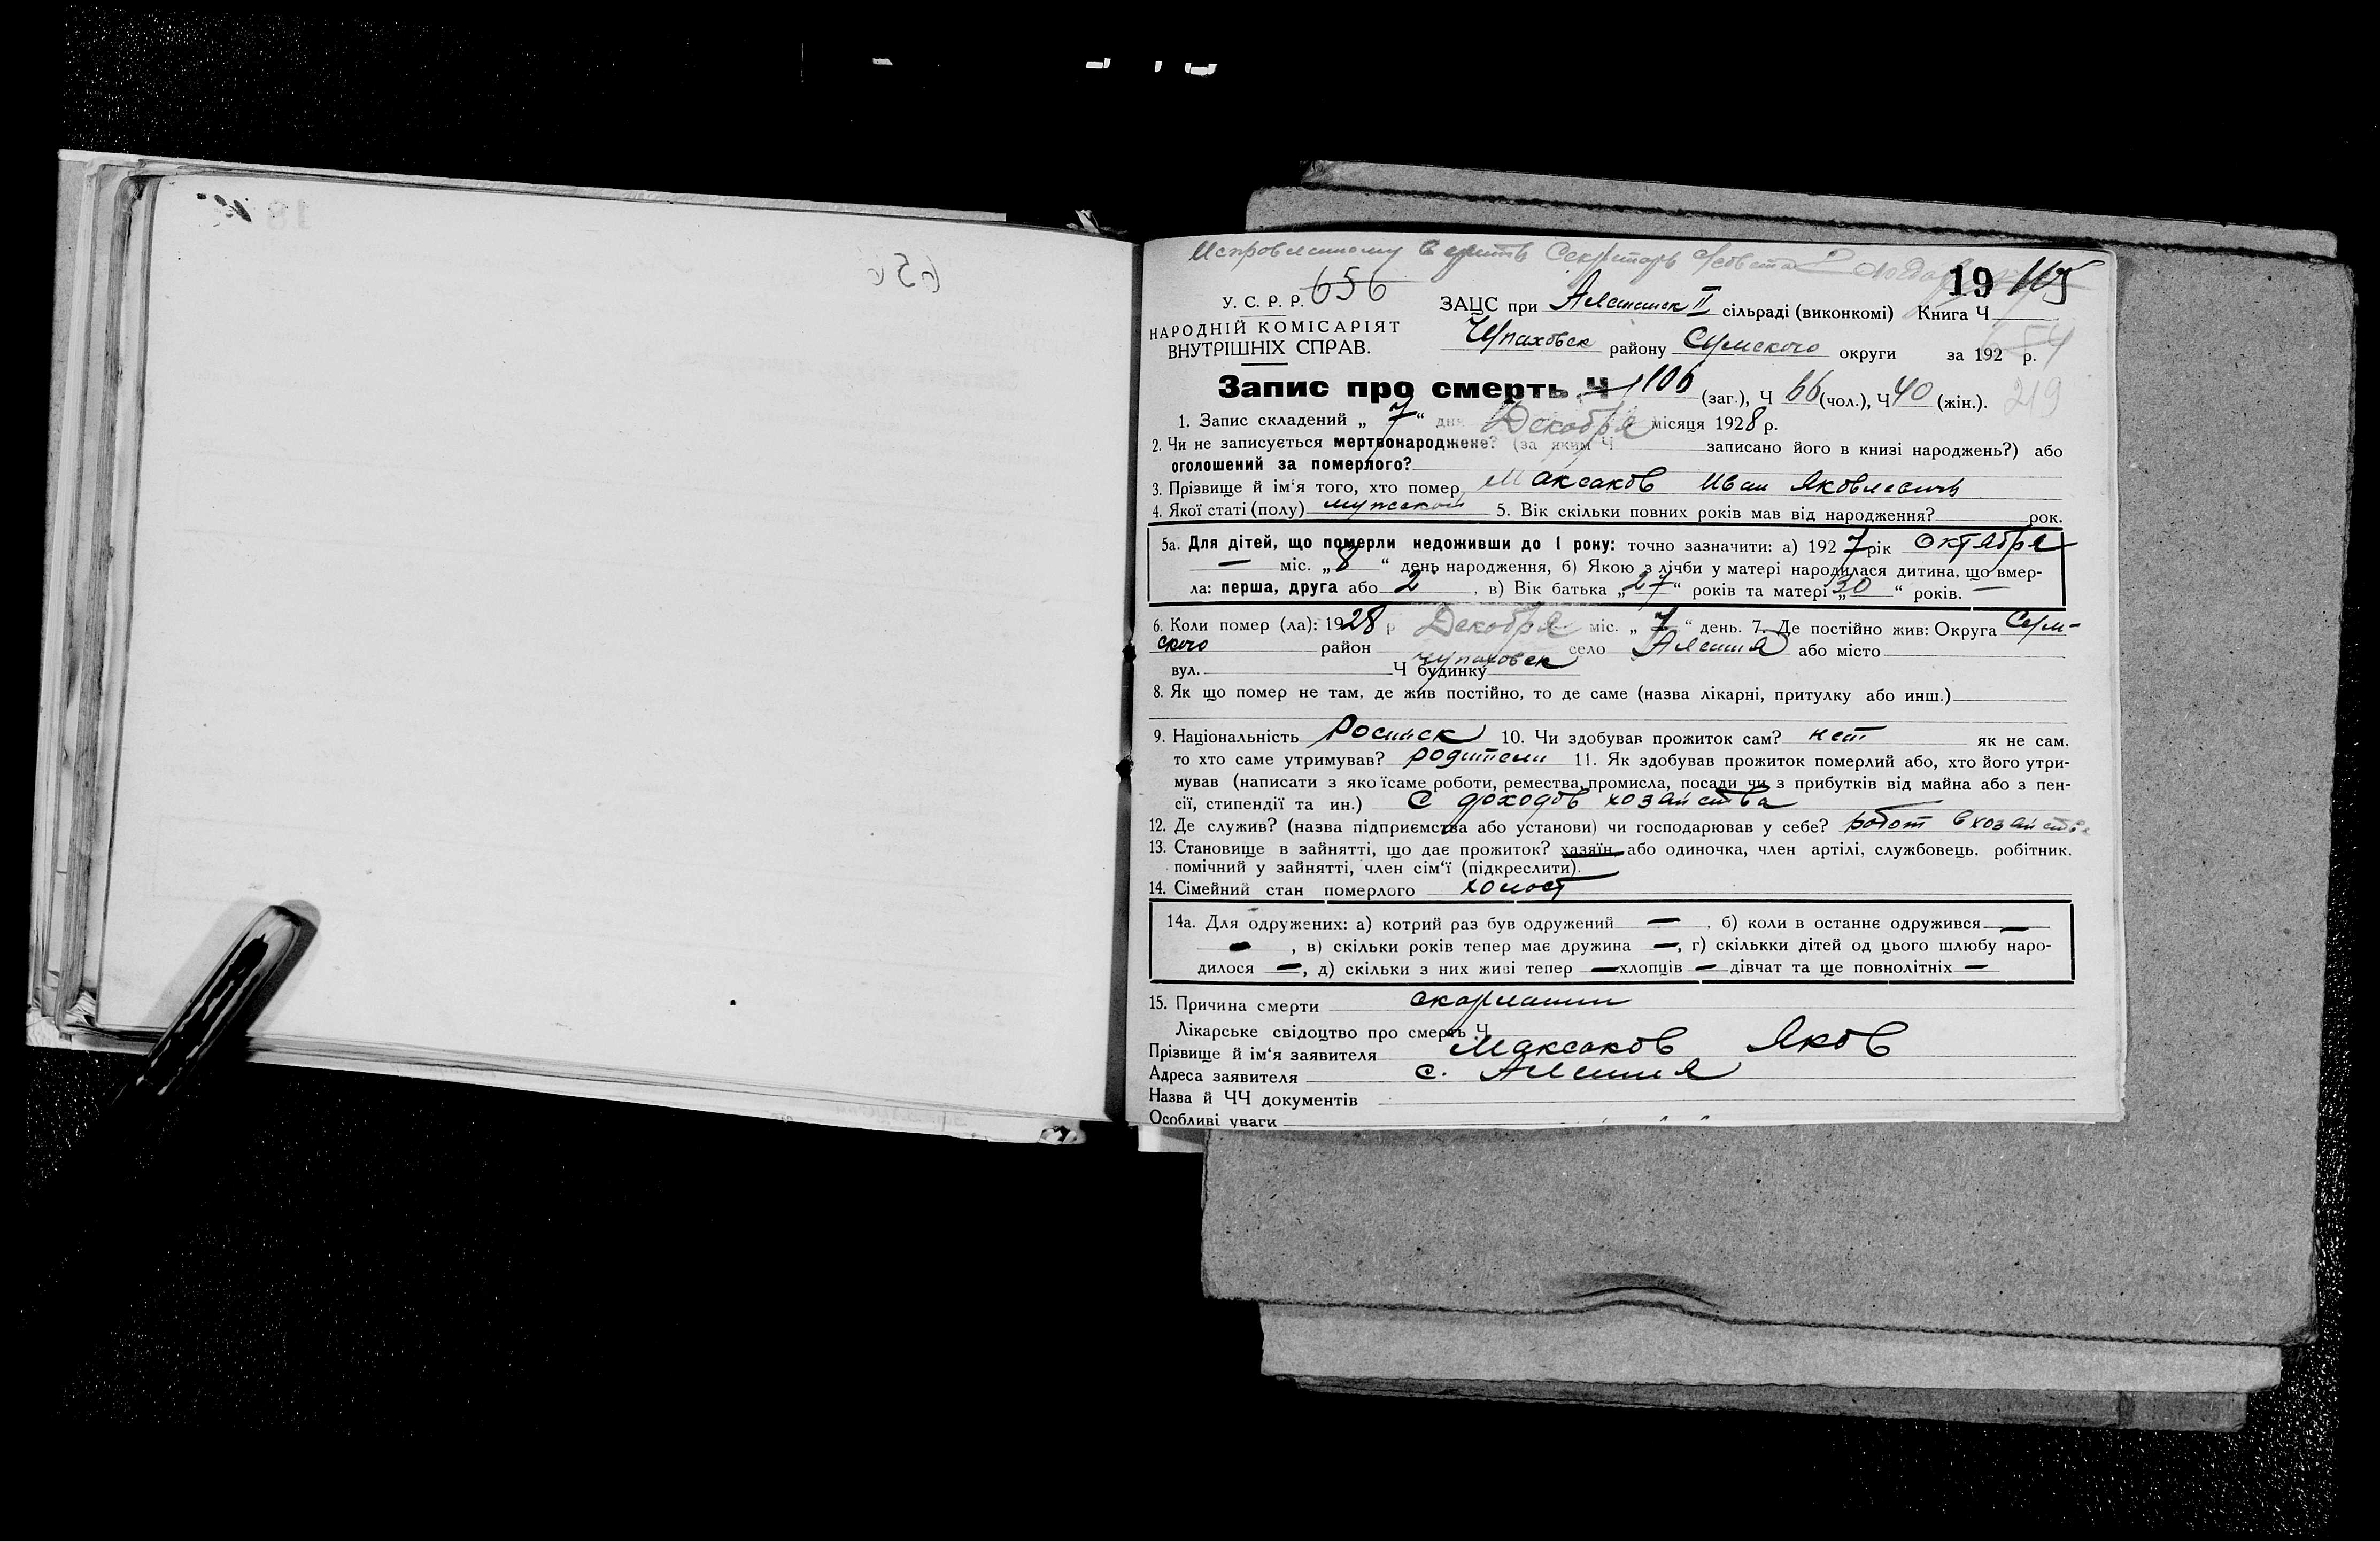 Исправленному верить Секретарь с/совета
19 115
У. С. Р. Р. 656
НАРОДНІЙ КОМІСАРІЯТ
ВНУТРІШНІХ СПРАВ.
ЗАЦС при II сільраді (виконкомі) Книга Ч
Чупаховск району Сумского округи за 192 р.
654
219
Запис про смерть Ч 106 (заг.), Ч 66 (чол.), Ч 40 (жін.).
1. Запис складений „ 7 “ дня Декабря місяця 1928 р.
2. Чи не записується мертвонароджене? (за яким Ч записано його в книзі народжень?) або
оголошений за померлого?
3. Прізвище й ім‘я того, хто помер Максаков Иван Яковлевичъ
4. Якої статі (полу) мужской 5. Вік скільки повних років мав від народження? рок.
5а. Для дітей, що померли недоживши до 1 року: точно зазначити: а) 1927 рік Октября
— міс. „ 8 “ день народження, б) Якою з лічби у матері народилася дитина, що вмер-
ла: перша, друга або 2 , в) Вік батька „ 27 “ років та матері „ 30 “ років. —
6. Коли помер (ла): 1928 р Декабря міс. „ 7 “ день. 7. Де постійно жив: Округа Сум-
ского район Чупаховск село Алешня або місто
вул. Ч будинку
8. Як що помер не там, де жив постійно, то де саме (назва лікарні, притулку або инш.)
9. Національність Росийск 10. Чи здобував прожиток сам? нет як не сам,
то хто саме утримував? родители 11. Як здобував прожиток померлий або, хто його утри-
мував (написати з якоїсаме роботи, ремества, промисла, посади чи з прибутків від майна або з пен-
сії, стипендії та ин.) С доходов хозайства
12. Де служив? (назва підприємства або установи) чи господарював у себе? работ в хозайстве
13. Становище в зайнятті, що дає прожиток? хазяїн або одиночка, член артілі, службовець, робітник,
помічний у зайнятті, член сім‘ї (підкреслити).
14. Сімейний стан померлого холост
14а. Для одружених: а) котрий раз був одружений — , б) коли в останнє одружився —
— , в) скільки років тепер має дружина —, г) скількки дітей од цього шлюбу наро-
дилося —, д) скільки з них живі тепер — хлопців — дівчат та ще повнолітніх —
15. Причина смерти скарлатин
Лікарське свідоцтво про смерть Ч
Прізвище й ім‘я заявителя Максаков Яков
Адреса заявителя с. Алешня
Назва й ЧЧ документів
Особливі уваги